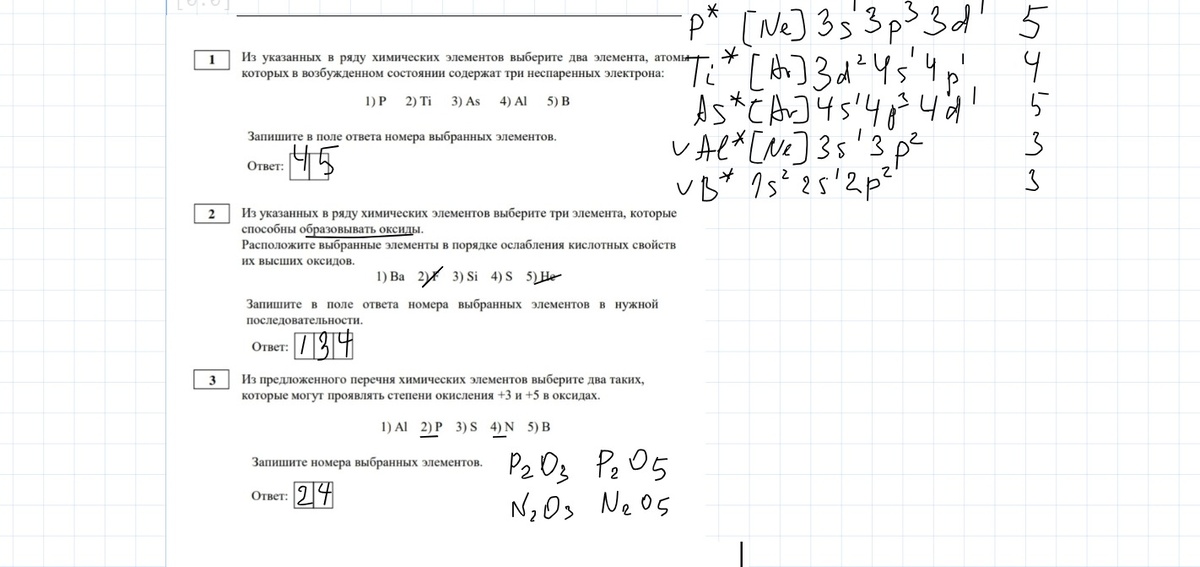 P* [Ne] 3s¹ 3p³ 3d¹ 5
1 Из указанных в ряду химических элементов выберите два элемента, атомы
которых в возбужденном состоянии содержат три неспаренных электрона:
Ti* [Ar] 3d² 4s¹ 4p¹ 4
1) P 2) Ti 3) As 4) Al 5) B
As* [Ar] 4s¹ 4p³ 4d¹ 5
Запишите в поле ответа номера выбранных элементов.
V Al* [Ne] 3s¹ 3p² 3
Ответ: 4 5
V B* 1s² 2s¹ 2p² 3
2 Из указанных в ряду химических элементов выберите три элемента, которые
способны образовывать оксиды.
Расположите выбранные элементы в порядке ослабления кислотных свойств
их высших оксидов.
1) Ba 2) F 3) Si 4) S 5) He
Запишите в поле ответа номера выбранных элементов в нужной
последовательности.
Ответ: 1 3 4
3 Из предложенного перечня химических элементов выберите два таких,
которые могут проявлять степени окисления +3 и +5 в оксидах.
1) Al 2) P 3) S 4) N 5) B
Запишите номера выбранных элементов.
P₂O₃ P₂O₅
Ответ: 2 4
N₂O₃ N₂O₅